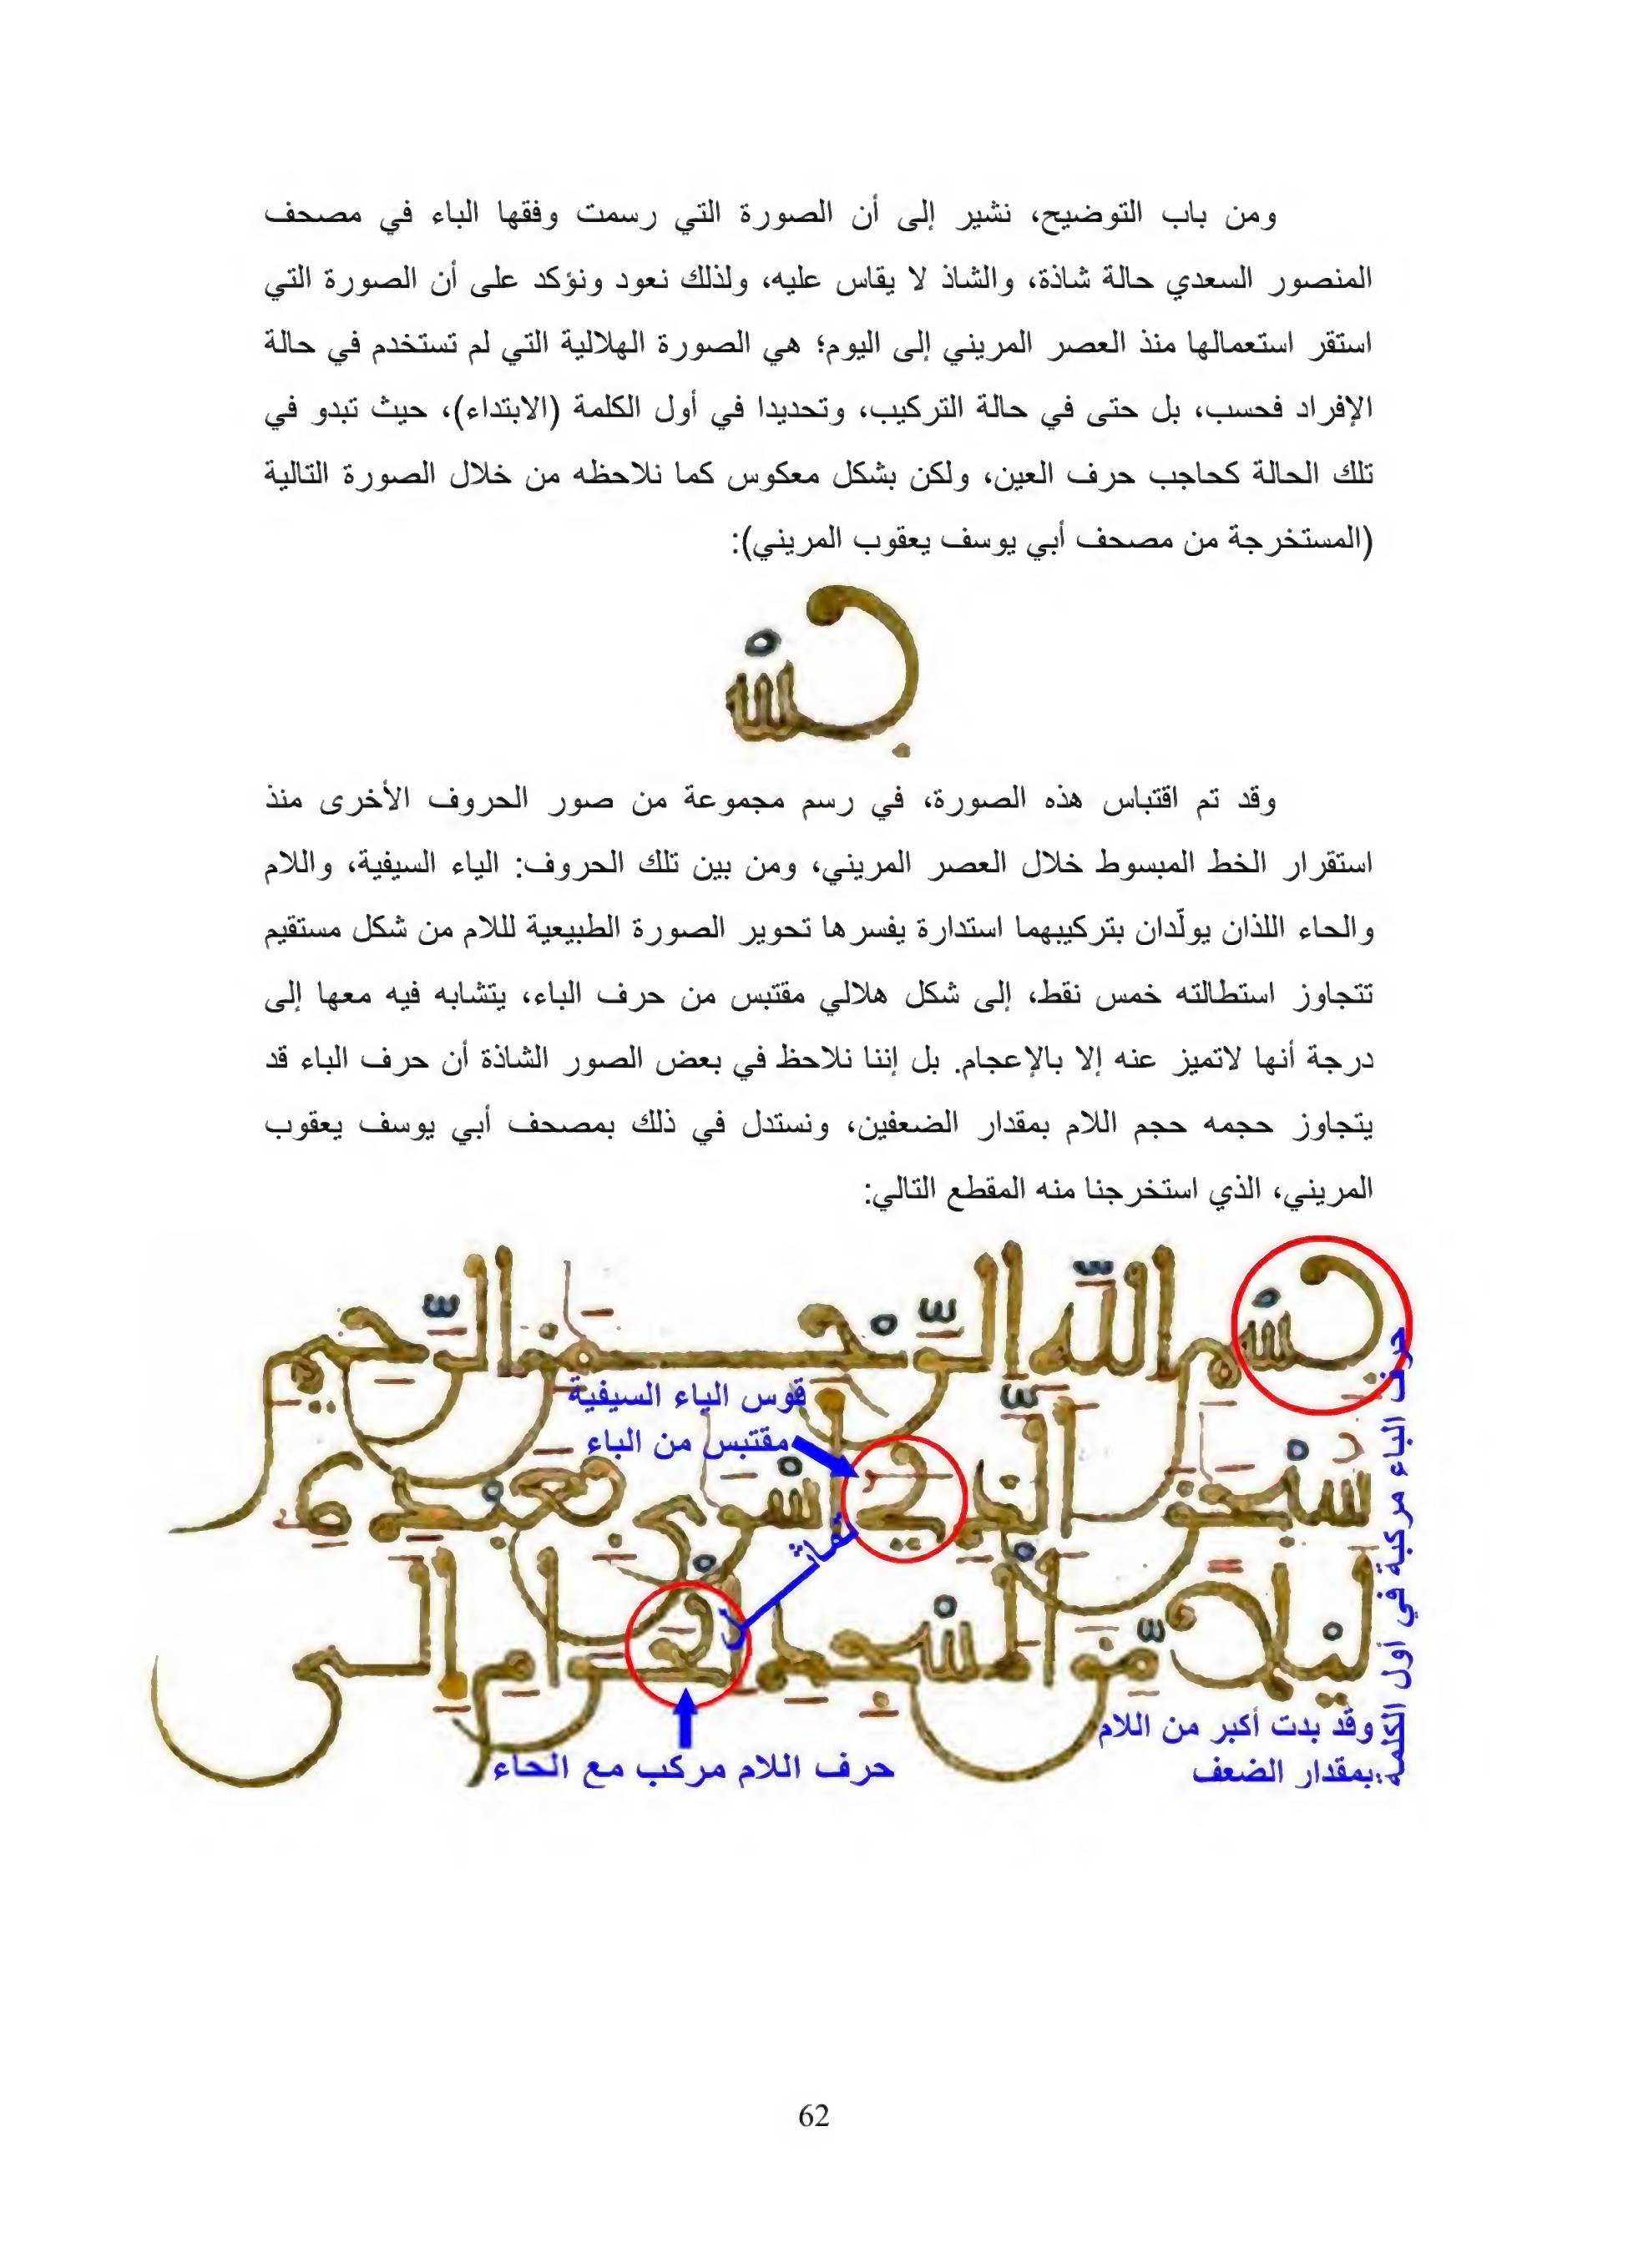 ومن باب التوضيح، نشير إلى أن الصورة التي رسمت وفقها الباء في مصحف
المنصور السعدي حالة شاذة، والشاذ لا يقاس عليه، ولذلك نعود ونؤكد على أن الصورة التي
استقر استعمالها منذ العصر المريني إلى اليوم؛ هي الصورة الهلالية التي لم تستخدم في حالة
الإفراد فحسب، بل حتى في حالة التركيب، وتحديدا في أول الكلمة (الابتداء)، حيث تبدو في
تلك الحالة كحاجب حرف العين، ولكن بشكل معكوس كما نلاحظه من خلال الصورة التالية
(المستخرجة من مصحف أبي يوسف يعقوب المريني):
بسْ
وقد تم اقتباس هذه الصورة، في رسم مجموعة من صور الحروف الأخرى منذ
استقرار الخط المبسوط خلال العصر المريني، ومن بين تلك الحروف: الياء السيفية، واللام
والحاء اللذان يولّدان بتركيبهما استدارة يفسرها تحوير الصورة الطبيعية للام من شكل مستقيم
تتجاوز استطالته خمس نقط، إلى شكل هلالي مقتبس من حرف الباء، يتشابه فيه معها إلى
درجة أنها لاتميز عنه إلا بالإعجام. بل إننا نلاحظ في بعض الصور الشاذة أن حرف الباء قد
يتجاوز حجمه حجم اللام بمقدار الضعفين، ونستدل في ذلك بمصحف أبي يوسف يعقوب
المريني، الذي استخرجنا منه المقطع التالي:
بسم الله الرحمن الرحيم
قوس الياء السيفية
مقتبس من الباء
سبحن الذي أسرى بعبده
ليلا من المسجد الحرام إلى
حرف اللام مركب مع الحاء
حرف الباء مركبة في أول الكلمة
وقد بدت أكبر من اللام
بمقدار الضعف
62